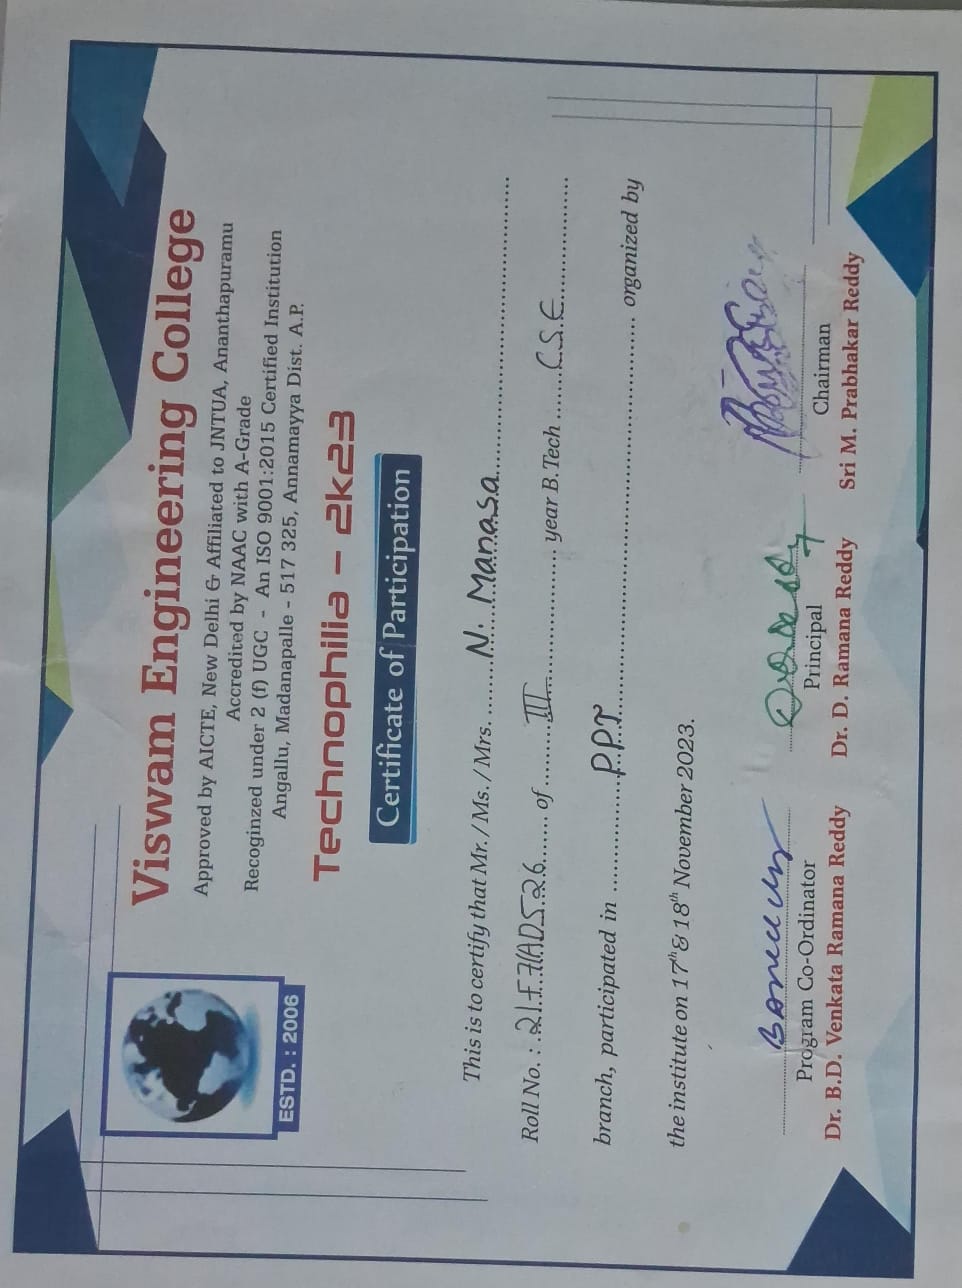 Viswam Engineering College
Approved by AICTE, New Delhi & Affiliated to JNTUA, Ananthapuramu
Accredited by NAAC with A-Grade
Recoginzed under 2 (f) UGC - An ISO 9001:2015 Certified Institution
Angallu, Madanapalle - 517 325, Annamayya Dist. A.P.
ESTD. : 2006
Technophilia - 2k23
Certificate of Participation
This is to certify that Mr. / Ms. / Mrs. ....... N. Manasa ..............................
Roll No. : 21F71AD526 ....... of ......... III .................... year B.Tech ....... CSE ....................
branch, participated in ................ PPT ........................................ organized by
the institute on 17th & 18th November 2023.
Program Co-Ordinator
Dr. B.D. Venkata Ramana Reddy
Principal
Dr. D. Ramana Reddy
Chairman
Sri M. Prabhakar Reddy